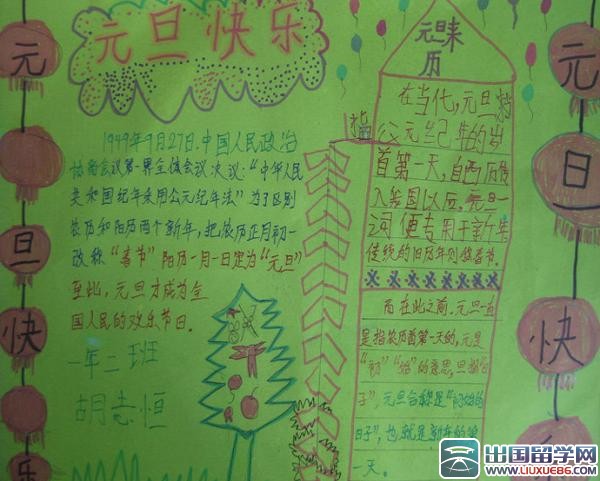 元旦快乐
1949年9月27日.中国人民政治
协商会议第一界全体会议决议:"中华人民
共和国纪年采用公元纪年法"为了区别
农历和阳历两个新年,把农历正月初一
改称"春节"阳历一月一日定为"元旦"
至此,元旦才成为全
国人民的欢乐节日.
一年二班
胡志恒
元旦来
历
在当代,元旦指
公元纪年的岁
首第一天,自西历传
入我国以历,元旦一
词便专用于新年
传统的旧历年则做春节.
而在此之前,元旦一直
是指农历首第一天的,元是
"初""始"的意思,旦指
子",元旦合称是"初始的
日子",也就是新年的第
一天.
元
旦
快
乐
元
旦
快
乐
出国留学网
WWW.LIUXUE86.COM